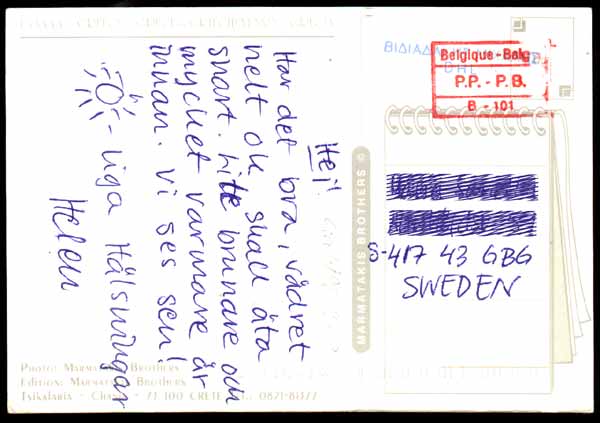 Hej!
Har det bra, vädret
helt ok. skall äta
snart. lite brunare och
mycket varmare är
innan. Vi ses sen!
-liga Hälsningar
Helen
Belgique - Belg
P.P. - P.B.
B - 101
MARMATAKIS BROTHERS ©
S-417 43 GBG
SWEDEN
Photo: Marmatakis Brothers
Edition: Marmatakis Brothers
Tsikalaria - Chania - 73 100 CRETE
0821-81377